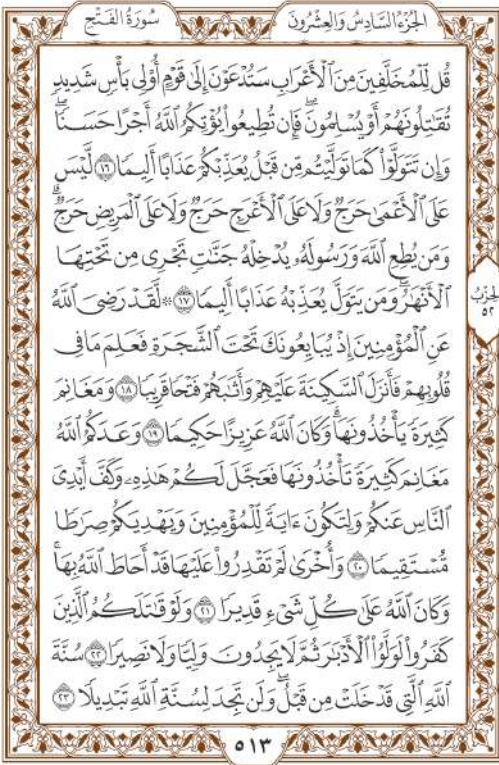 سُورَةُ الفَتْحِ
الجُزْءُ السَّادِسُ وَالعِشْرُونَ
قُل لِّلْمُخَلَّفِينَ مِنَ ٱلْأَعْرَابِ سَتُدْعَوْنَ إِلَىٰ قَوْمٍ أُو۟لِى بَأْسٍ شَدِيدٍ
تُقَٰتِلُونَهُمْ أَوْ يُسْلِمُونَ ۖ فَإِن تُطِيعُوا۟ يُؤْتِكُمُ ٱللَّهُ أَجْرًا حَسَنًا ۖ
وَإِن تَتَوَلَّوْا۟ كَمَا تَوَلَّيْتُم مِّن قَبْلُ يُعَذِّبْكُمْ عَذَابًا أَلِيمًا ١٦ لَّيْسَ
عَلَى ٱلْأَعْمَىٰ حَرَجٌ وَلَا عَلَى ٱلْأَعْرَجِ حَرَجٌ وَلَا عَلَى ٱلْمَرِيضِ حَرَجٌ ۗ
وَمَن يُطِعِ ٱللَّهَ وَرَسُولَهُۥ يُدْخِلْهُ جَنَّٰتٍ تَجْرِى مِن تَحْتِهَا
ٱلْأَنْهَٰرُ ۖ وَمَن يَتَوَلَّ يُعَذِّبْهُ عَذَابًا أَلِيمًا ١٧ ۞ لَّقَدْ رَضِىَ ٱللَّهُ
عَنِ ٱلْمُؤْمِنِينَ إِذْ يُبَايِعُونَكَ تَحْتَ ٱلشَّجَرَةِ فَعَلِمَ مَا فِى
قُلُوبِهِمْ فَأَنزَلَ ٱلسَّكِينَةَ عَلَيْهِمْ وَأَثَٰبَهُمْ فَتْحًا قَرِيبًا ١٨ وَمَغَانِمَ
كَثِيرَةً يَأْخُذُونَهَا ۗ وَكَانَ ٱللَّهُ عَزِيزًا حَكِيمًا ١٩ وَعَدَكُمُ ٱللَّهُ
مَغَانِمَ كَثِيرَةً تَأْخُذُونَهَا فَعَجَّلَ لَكُمْ هَٰذِهِۦ وَكَفَّ أَيْدِىَ
ٱلنَّاسِ عَنكُمْ وَلِتَكُونَ ءَايَةً لِّلْمُؤْمِنِينَ وَيَهْدِيَكُمْ صِرَٰطًا
مُّسْتَقِيمًا ٢٠ وَأُخْرَىٰ لَمْ تَقْدِرُوا۟ عَلَيْهَا قَدْ أَحَاطَ ٱللَّهُ بِهَا ۚ
وَكَانَ ٱللَّهُ عَلَىٰ كُلِّ شَىْءٍ قَدِيرًا ٢١ وَلَوْ قَٰتَلَكُمُ ٱلَّذِينَ
كَفَرُوا۟ لَوَلَّوُا۟ ٱلْأَدْبَٰرَ ثُمَّ لَا يَجِدُونَ وَلِيًّا وَلَا نَصِيرًا ٢٢ سُنَّةَ
ٱللَّهِ ٱلَّتِى قَدْ خَلَتْ مِن قَبْلُ ۖ وَلَن تَجِدَ لِسُنَّةِ ٱللَّهِ تَبْدِيلًا ٢٣
الحِزْبُ
٥٢
٥١٣